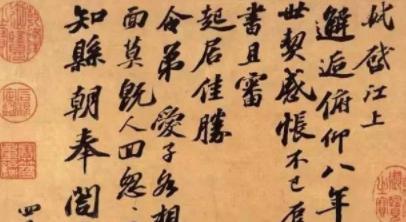 軾啓江上
邂逅俯仰八年
世契感悵不已
書且審
起居佳勝
令弟愛子各想
面莫既人回忽
知縣朝奉閤
四